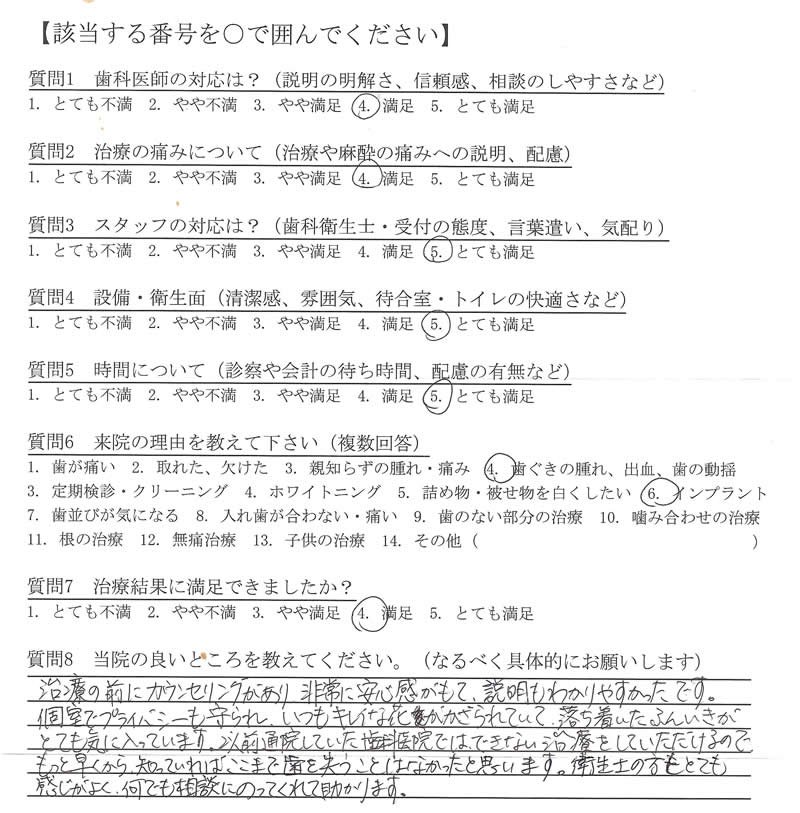 【該当する番号を〇で囲んでください】
質問1 歯科医師の対応は？（説明の明解さ、信頼感、相談のしやすさなど）
1. とても不満 2. やや不満 3. やや満足 4. 満足 5. とても満足
質問2 治療の痛みについて（治療や麻酔の痛みへの説明、配慮）
1. とても不満 2. やや不満 3. やや満足 4. 満足 5. とても満足
質問3 スタッフの対応は？（歯科衛生士・受付の態度、言葉遣い、気配り）
1. とても不満 2. やや不満 3. やや満足 4. 満足 5. とても満足
質問4 設備・衛生面（清潔感、雰囲気、待合室・トイレの快適さなど）
1. とても不満 2. やや不満 3. やや満足 4. 満足 5. とても満足
質問5 時間について（診察や会計の待ち時間、配慮の有無など）
1. とても不満 2. やや不満 3. やや満足 4. 満足 5. とても満足
質問6 来院の理由を教えて下さい（複数回答）
1. 歯が痛い 2. 取れた、欠けた 3. 親知らずの腫れ・痛み 4. 歯ぐきの腫れ、出血、歯の動揺
3. 定期検診・クリーニング 4. ホワイトニング 5. 詰め物・被せ物を白くしたい 6. インプラント
7. 歯並びが気になる 8. 入れ歯が合わない・痛い 9. 歯のない部分の治療 10. 噛み合わせの治療
11. 根の治療 12. 無痛治療 13. 子供の治療 14. その他（ ）
質問7 治療結果に満足できましたか？
1. とても不満 2. やや不満 3. やや満足 4. 満足 5. とても満足
質問8 当院の良いところを教えてください。（なるべく具体的にお願いします）
治療の前にカウンセリングがあり 非常に安心感がもて、説明もわかりやすかったです。
個室でプライバシーも守られ、いつもキレイな花がかざられていて、落ち着いたふんいきが
とても気に入っています。以前通院していた歯科医院ではできない治療をしていただけるので
もっと早くから、知っていれば、ここまで歯を失うことはなかったと思います。衛生士の方もとても
感じがよく、何でも相談にのってくれて助かります。